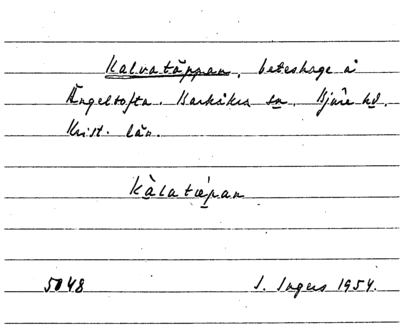 Kalvatäppan, beteshage å
Ängeltofta. Barkåkra sn. Bjäre hd.
Krist. län.
Kàlatæ̀pan
5048 I. Ingers 1954.